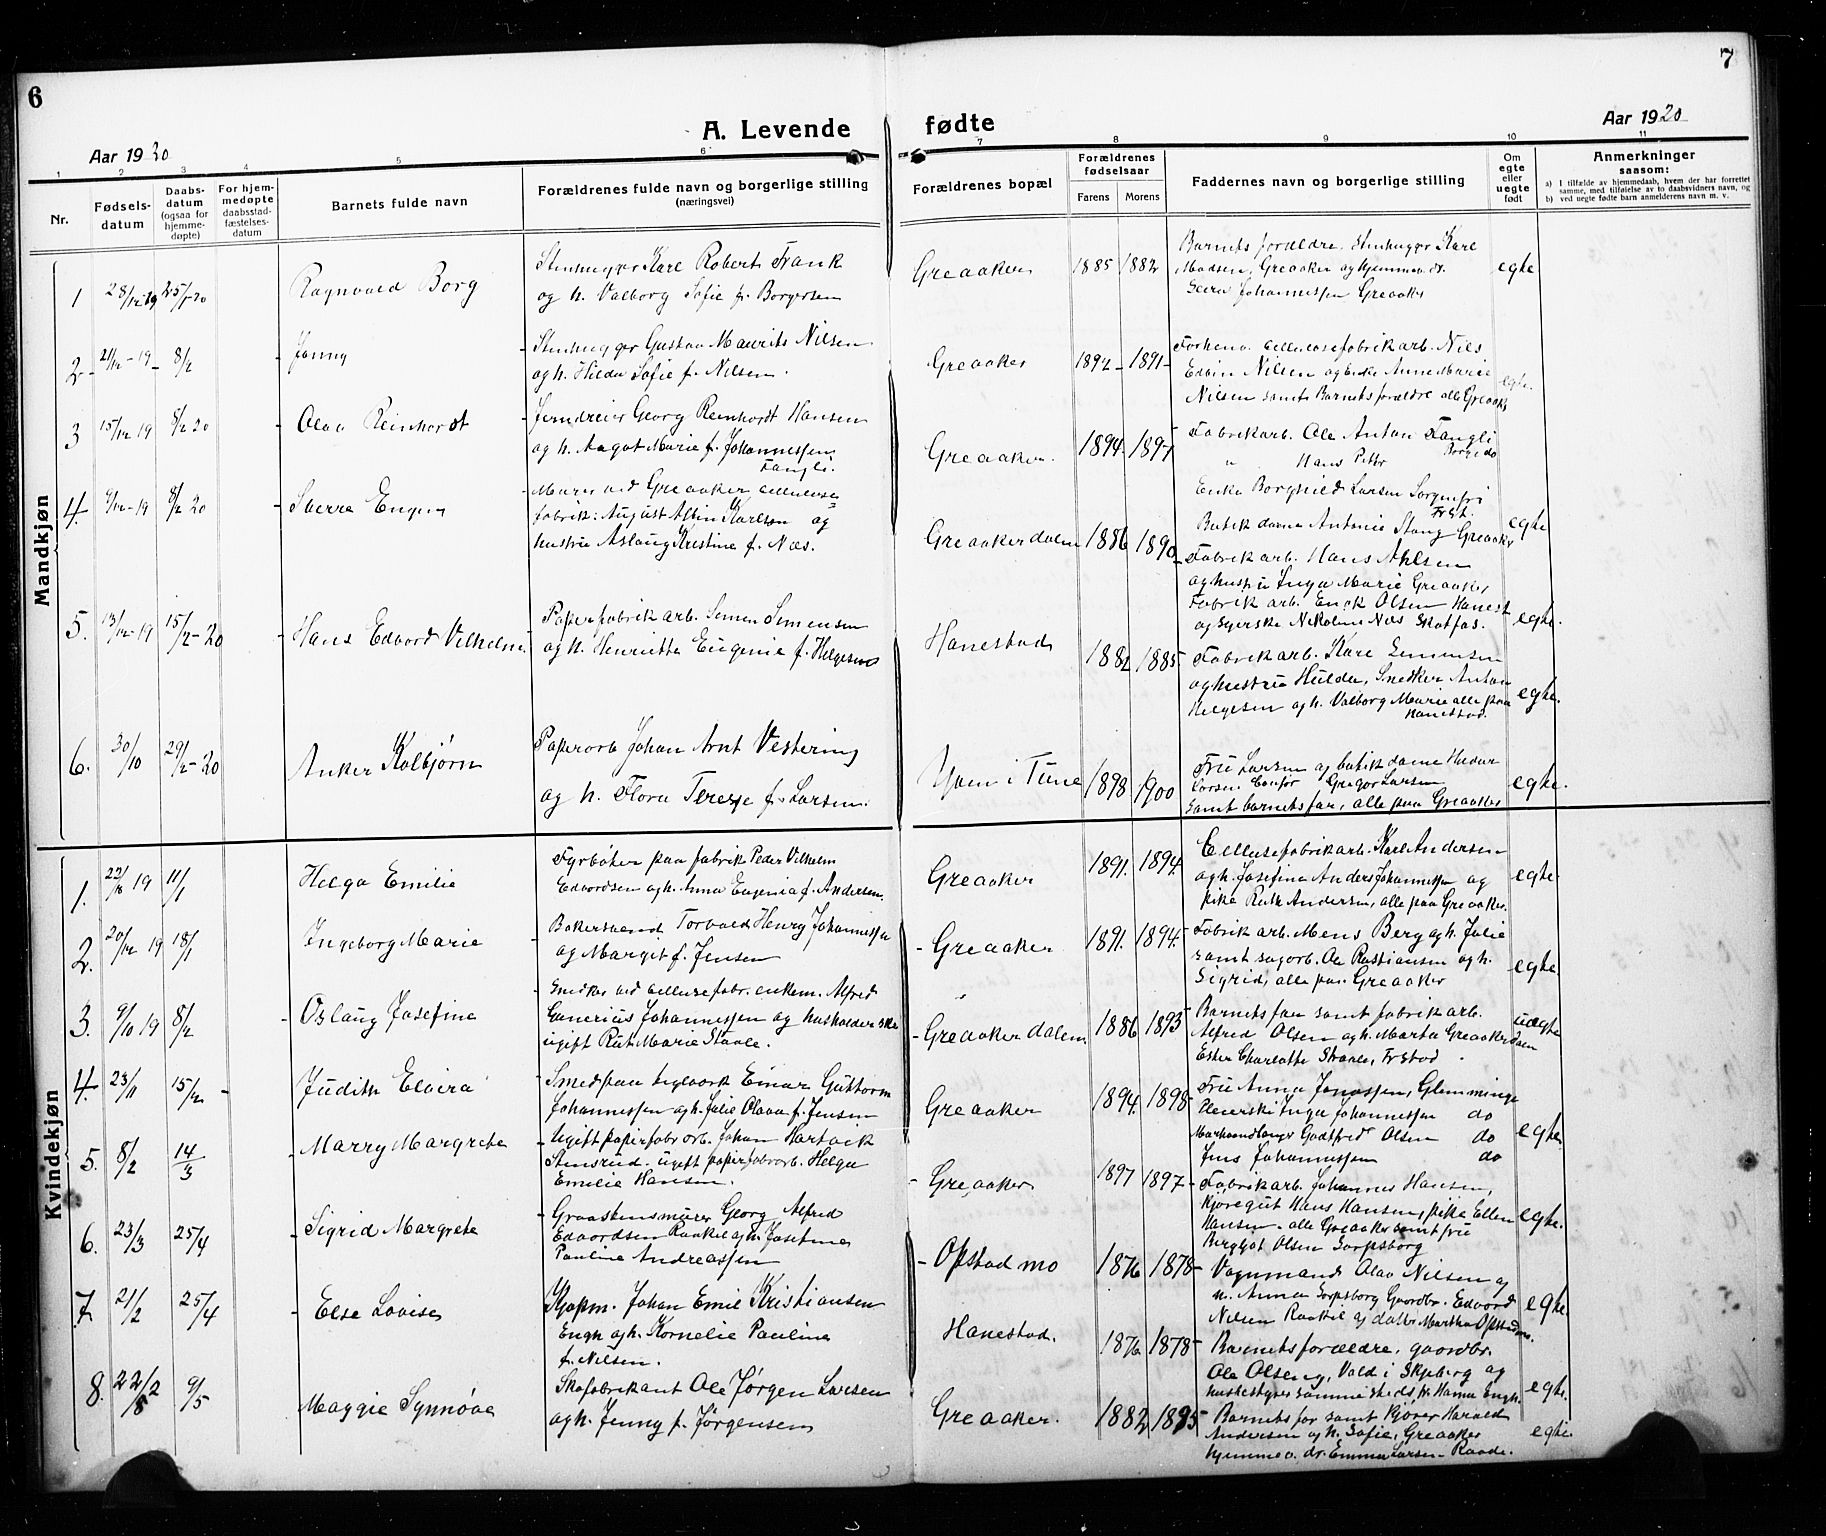 6
7
A. Levende fødte
Aar 1920
Aar 1920
1 2 3 4 5 6 7 8 9 10 11
Nr.
Fødsels-
datum
Daabs-
datum
(ogsaa for
hjemme-
døpte)
For hjem-
medøpte
daabsstad-
fæstelses-
datum
Barnets fulde navn
Forældrenes fulde navn og borgerlige stilling
(næringsvei)
Forældrenes bopæl
Forældrenes
fødselsaar
Farens Morens
Faddernes navn og borgerlige stilling
Om
egte
eller
uegte
født
Anmerkninger
saasom:
a) I tilfælde av hjemmedaab, hvem der har forrettet
samme, med tilføielse av to daabsvidners navn, og
b) ved uegte fødte barn anmelderens navn m. v.
Mandkjøn
1 28/12 19 25/1 20 Ragnvald Borg
Stenhugger Karl Robert Frank
og h. Valborg Sofie f. Borgersen
Greaaker 1885 1882
Barnets forældre, Stenhugger Karl
Madsen, Greaaker og hjemmev. dr.
Johannessen Greaaker
egte
2 - 21/12 - 19 - 8/2 - Jonny
- Stenhugger Gustav Maurits Nilsen
og h. Hilda Sofie f. Nilsen.
Greaaker 1892 - 1891 -
Forhenv. cellulosefabrikarb. Nils
Edvin Nilsen og enke Anne Marie
Nilsen samt Barnets forældre alle Greaaker
egte.
3 15/12 19 8/2 20 - Olav Reinhardt
- Jerndreier Georg Reinhardt Hansen
og h. Aagot Marie f. Johannessen
Fangli.
Greaaker. 1894 - 1897
Fabrikarb. Ole Anton Fangli
" Hans Petter Borge do
Enke Borghild Larsen Sorgenfri
Fr.st.
Butikdame Antonie Stang Greaaker
egte
4. 9/12 - 19 8/2 20 - Sverre Eugen
- Murer ved Greaaker cellulose
fabrik: August Albin Karlsen og
hustru Aslaug Kristine f. Næs.
Greaakerdalen 1886 1890
- Fabrikarb. Hans Ahlsen
og hustru Inga Marie Greaaker,
Fabrikarb. Erick Olsen Hanest
og syerske Nikoline Næs Skatfos.
egte.
5. 13/12 - 19 15/2 - 20 - Hans Edvard Vilhelm
Papirfabrikarb. Simen Simensen
og h. Henriette Eugenie f. Helgesen
Hanestad 1882 1885
- Fabrikarb. Karl Simensen
og hustru Hulda, Snedker Anton
Helgesen og h. Valborg Marie alle paa
Hanestad.
egte.
6. 30/10 29/2 - 20 Anker Kolbjørn
Papirarb Johan Arnt Vestering
og h. Flora Terese f. Larsen.
Yven i Tune 1898 1900
Fru Larsen og butikdame Huldur
Larsen Gregor Larsen
samt barnets far, alle paa Greaaker
egte.
Kvindekjøn
1. 22/8 19 11/1 Helga Emilie
Fyrbøter paa fabrik Peder Vilhelm
Edvardsen og h. Anna Eugenia f. Andersen
Greaaker 1891. 1894.
Cellulosefabrikarb. Karl Andersen
og h. Josefine Anders Johannessen og
pike Ruth Andersen, alle paa Greaaker.
egte
2. 20/12 19 18/1 Ingeborg Marie
- Bakersvend Torvald Henry Johannessen
og Margit f. Jensen
- Greaaker 1891. 1894.
- Fabrikarb. Mens Berg og h. Julie
samt sagarb. Ole Kristiansen og h.
Sigrid, alle paa Greaaker
egte.
3. 9/10 19 8/2 - Oslaug Josefine
- Snedker ved cellulosefabr. enkem. Alfred
Gunerius Johannessen og husholderske
ugift Rut Marie Staale.
- Greaakerdalen 1886 1893
- Barnets far samt fabrikarb.
Alfred Olsen og h. Marta Greaakerdalen
Ester Charlotte Straale, Frstad.
uegte
4. 23/11 15/2 - Judith Elvira
- Smed paa teglverk Einar Guttorm
Johannessen og h. Julie Olava f. Jensen
Greaaker 1894. 1898 -
- Fru Anna Jonassen, Glemminge
Inga Johannessen do
Murhaandlanger Godtfred Olsen do
Jens Johannessen do
egte
5. 8/2 14/3 - Marry Margrete
- Ugift papirfabr.arb. Johan Hartvik
Stensrud. ugift papirfabrarb. Helga
Emilie Hansen.
- Greaaker 1897 1897 -
- Fabrikarb. Johannes Hansen,
kjøregut Hans Hansen, pike Ellen
Hansen - alle Greaaker samt fru
Bergljot Olsen Sarpsborg
egte.
6. 23/3 25/4 - Sigrid Margrete
- Graastensmurer Georg Alfred
Edvardsen Raakil og h. Josefine
Pauline Andreassen
- Opstad mo 1876 1878 -
Vognmand Olav Nilsen og
h. Anna Sarpsborg Gaardbr. Edvard
Nilsen Raakil og datter Martha Opstadmo.
egte
7. 21/2 25/4 - Else Lovise
Kjøpm. Johan Emil Kristiansen
Engh og h. Kornelie Pauline
f. Nilsen.
Hanestad. 1876 1878 -
Barnets forældre, gaardbr.
Ole Olsen Vald i Skjeberg og
husbestyrer sammesteds fr. Hanna Engh.
egte.
8. 22/2 9/5 Maggie Synnøve
Skofabrikant Ole Jørgen Larsen
og h. Jenny f. Jørgensen
Greaaker. 1882 1885
- Barnets far samt kjører Harald
Andersen og h. Sofie, Greaaker
hjemmev. dr. Emma Larsen - Raade.
egte.